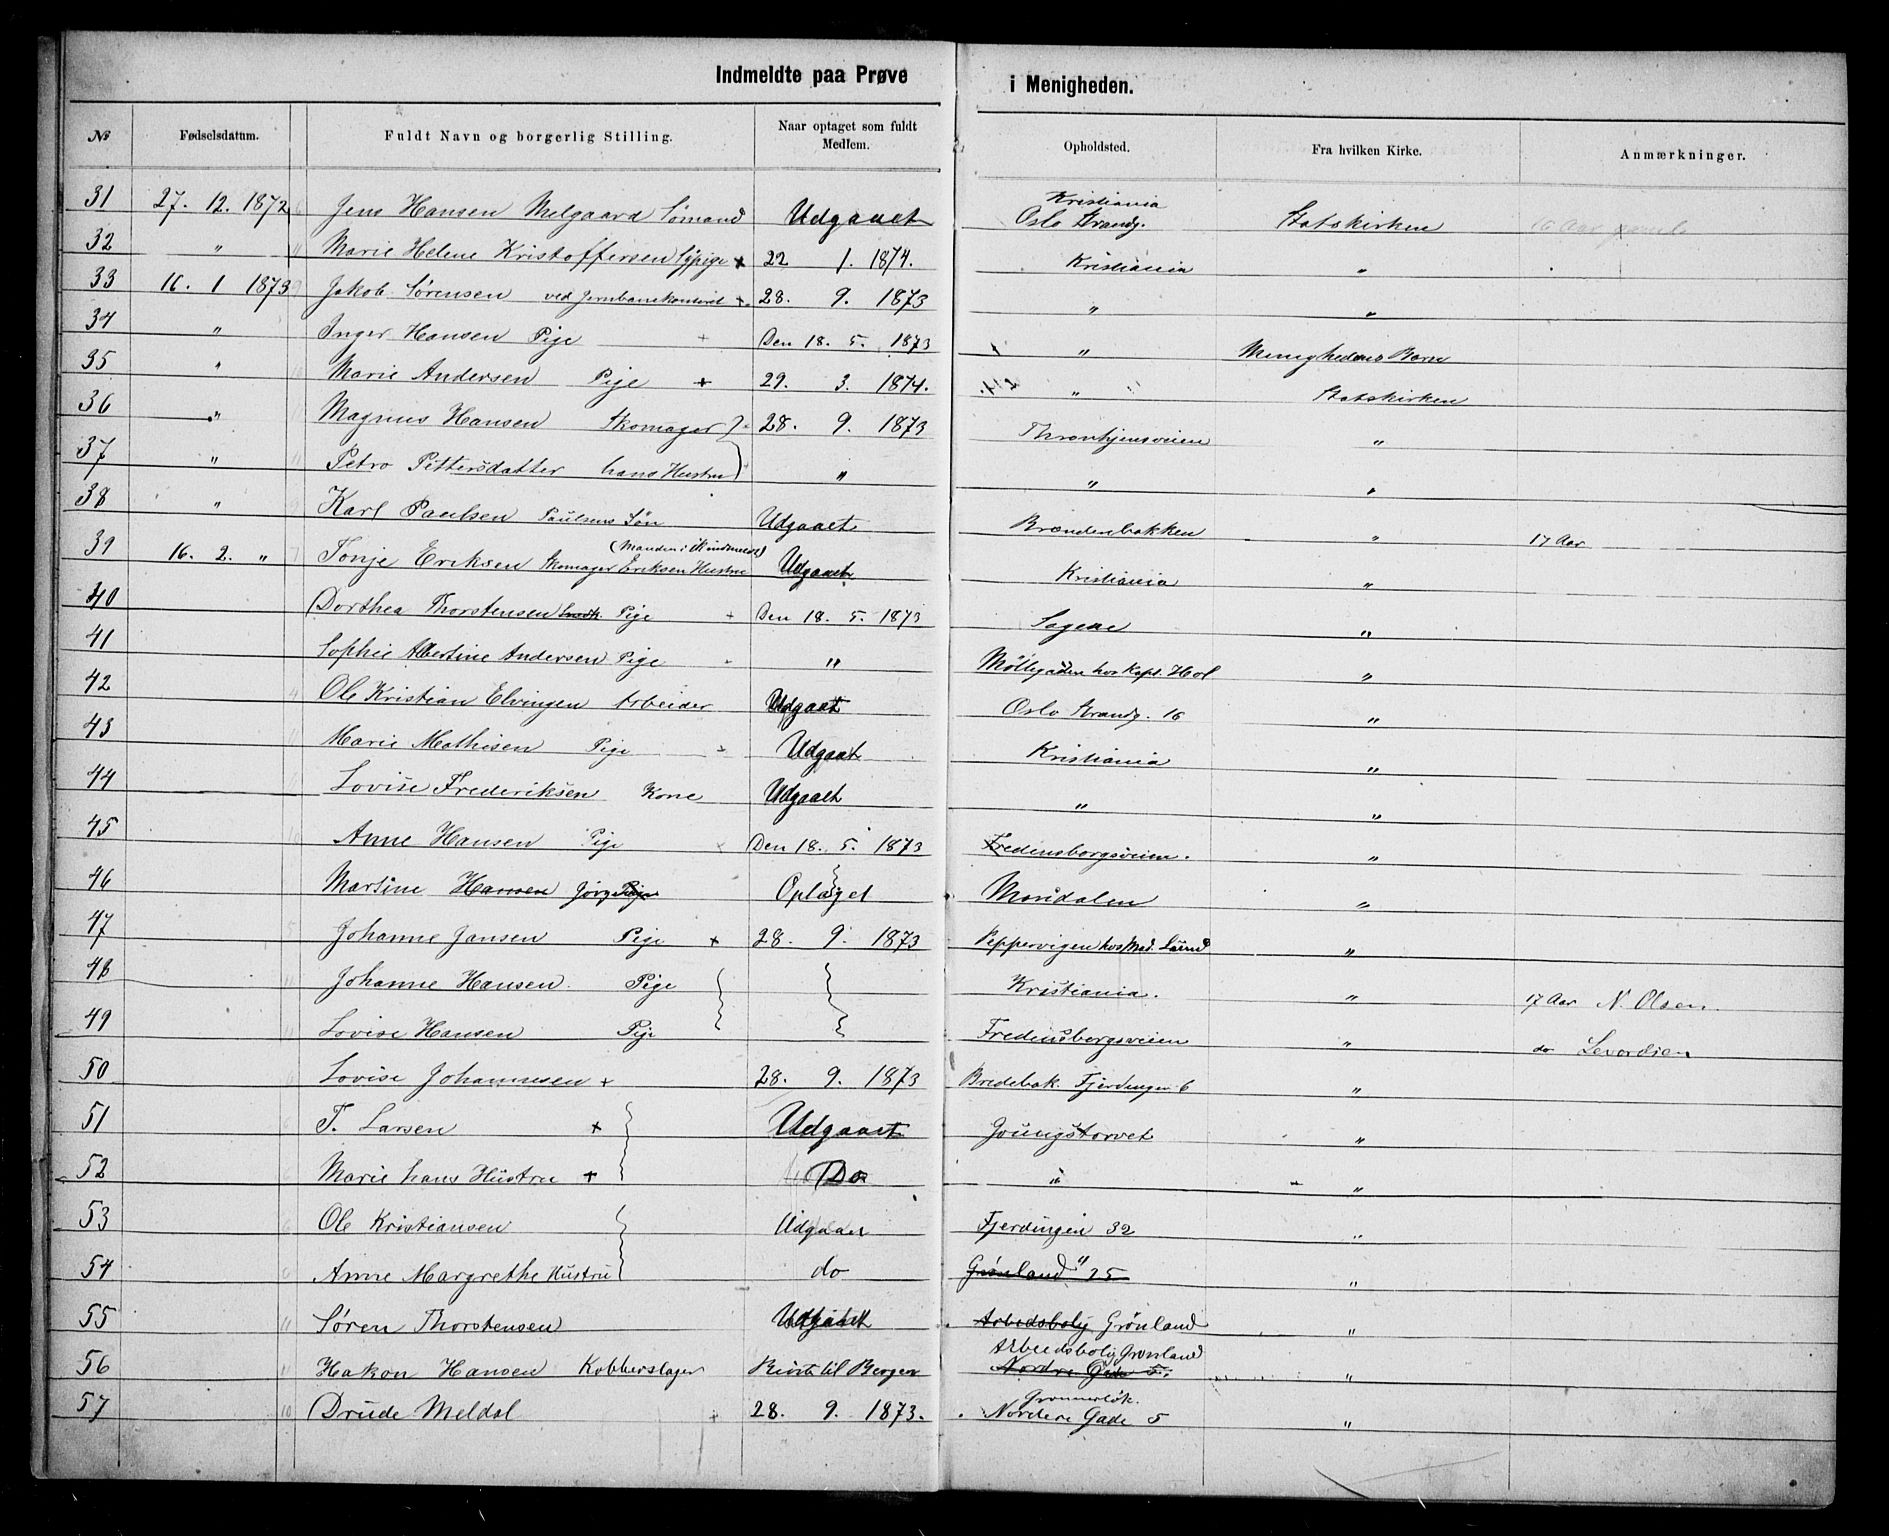 Indmeldte paa Prøve i Menigheden.
No Fødselsdatum. Fuldt Navn og borgerlig Stilling. Naar optaget som fuldt Medlem. Opholdsted. Fra hvilken Kirke. Anmærkninger.
31 27. 12. 1872 Jens Hansen Melgaard Sømand Udgaaet Kristiania Oslo Strandg. Statskirken 16 Aar gamle
32 " Marie Helene Kristoffersen Sypige + 22 1. 1874. Kristiania "
33 16. 1 1873 Jakob Sørensen ved Jernbanekontoret + 28. 9. 1873 " "
34 " Inger Hansen Pige + Den 18. 5. 1873 " Menighedens Barn
35 " Marie Andersen Pige + 29. 3. 1874. " Statskirken
36 " Magnus Hansen Skomager 28. 9. 1873 Thronhjemsveien "
37 " Petro Pettersdatter hans Hustru " " "
38 " Karl Paulsen Paulsens Søn Udgaaet Brøndenbakken " 17 Aar
39 16. 2. " Tonje Eriksen Skomager Eriksen Hustru Udgaaet Kristiania "
40 Dorthea Thorstensen Pige + Den 18. 5. 1873 Sagene "
41 Sophie Albertine Andersen Pige " Möllegaden hos Kapt. Hol "
42 Ole Kristian Elvingen Arbeider Udgaat Oslo Strandg. 16 "
43 Marie Mathisen Pige Udgaat Kristiania "
44 Lovise Frederiksen Kone Udgaaet " "
45 Anne Hansen Pige Den 18. 5. 1873 Fredensborgsveien. "
46 Martine Hansen Pige Optaget Maridalen "
47 Johanne Jansen Pige + 28. 9. 1873 Peppervigen hos Mad. Lund "
48 Johanne Hansen. Pige Kristiania. " 17 Aar N. Olsen.
49 Lovise Hansen Pige Fredensborgsveien " do
50 Lovise Johannesen + 28. 9. 1873 Bredebak. Fjerdingen 6 "
51 T. Larsen + Udgaaet Youngstorvet "
52 Marie hans Hustru + Do " "
53 Ole Kristiansen Udgaaet Fjerdingen 32 "
54 Anne Margrethe Hustru do Grønland 25 " "
55 Søren Thorstensen Udgaaet Arbedsbolig Grönland "
56 Hakon Hansen Kobberslager Reist til Bergen Arbeidsbolig Grønland Nordre Gade 5. "
57 Drude Meldal + 28. 9. 1873. Grønnerløk. Nordere Gade 5 "